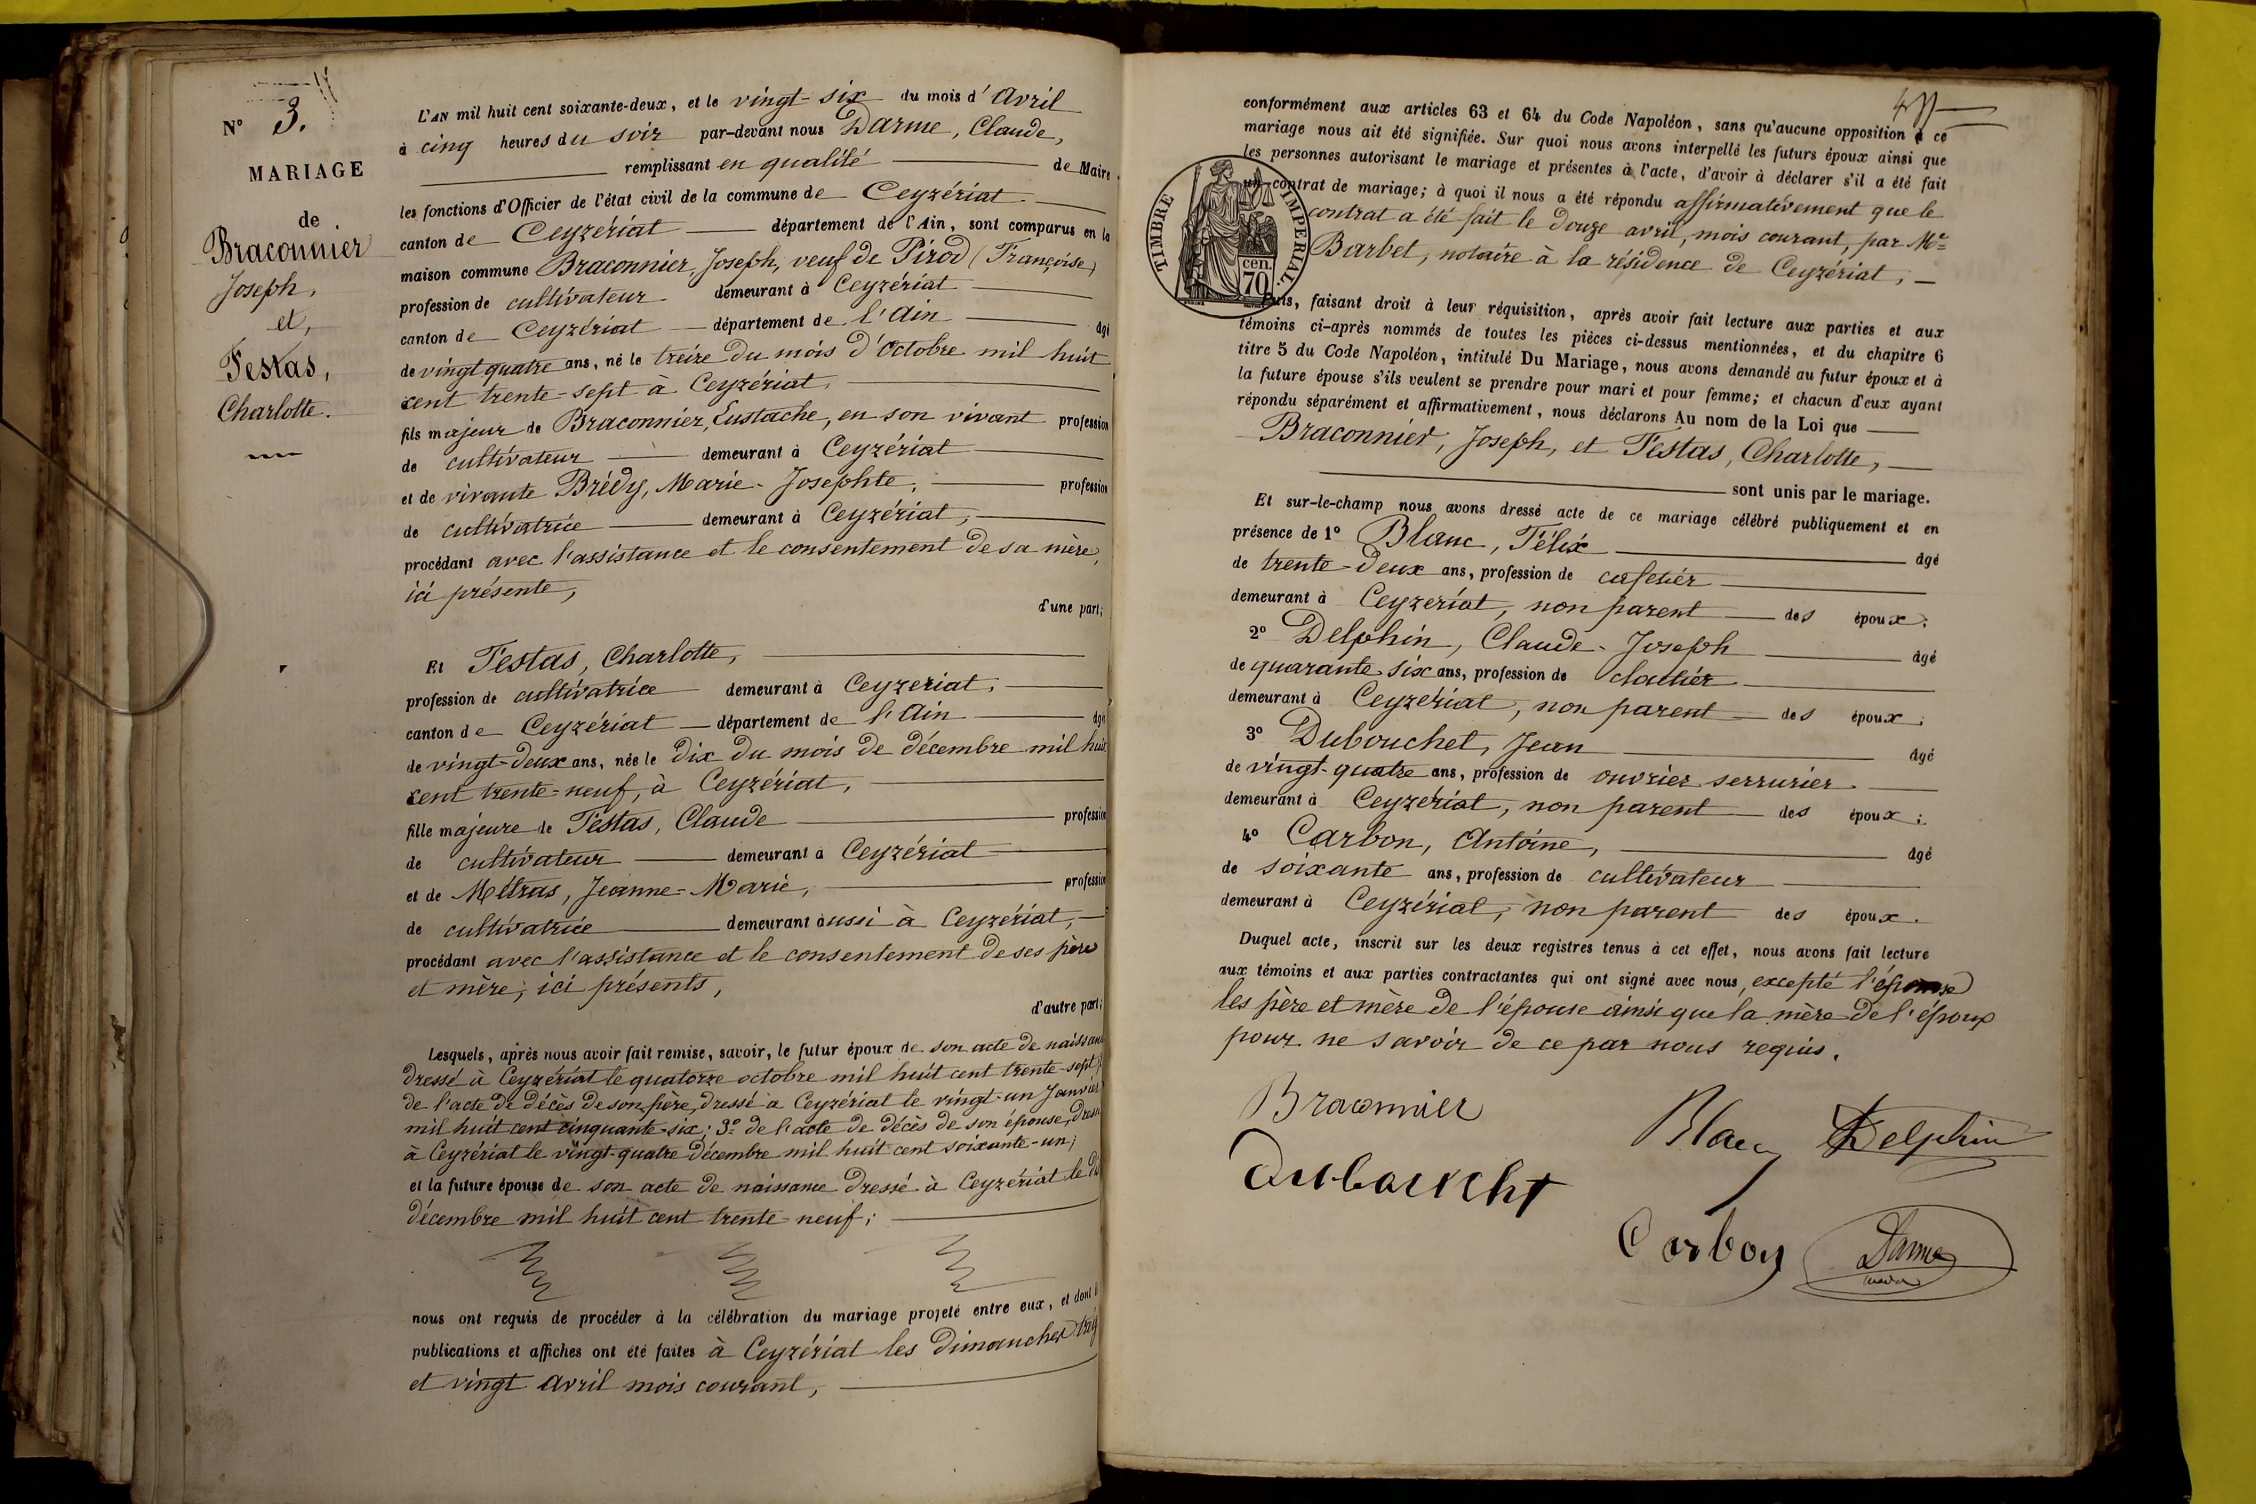 N° 3.
MARIAGE
de
Braconnier
Joseph,
et,
Festas,
Charlotte.
L'AN mil huit cent soixante-deux, et le vingt-six du mois d'Avril
à cinq heures du soir par-devant nous Darme, Claude,
remplissant en qualité de Maire
les fonctions d'Officier de l'état civil de la commune de Ceyzériat
canton de Ceyzériat département de l'Ain, sont comparus en la
maison commune Braconnier, Joseph, veuf de Pirod (Françoise)
profession de cultivateur demeurant à Ceyzériat
canton de Ceyzériat département de l'Ain âgé
de vingt quatre ans, né le treize du mois d'Octobre mil huit
cent trente-sept à Ceyzériat,
fils majeur de Braconnier, Eustache, en son vivant profession
de cultivateur demeurant à Ceyzériat
et de vivante Brédy, Marie-Josephte, profession
de cultivatrice demeurant à Ceyzériat,
procédant avec l'assistance et le consentement de sa mère,
ici présente,
d'une part;
Et Festas, Charlotte,
profession de cultivatrice demeurant à Ceyzeriat,
canton de Ceyzériat département de l'Ain âgée
de vingt-deux ans, née le dix du mois de décembre mil huit
cent trente-neuf, à Ceyzériat,
fille majeure de Festas, Claude profession
de cultivateur demeurant à Ceyzériat
et de Métras, Jeanne-Marie, profession
de cultivatrice demeurant aussi à Ceyzériat,
procédant avec l'assistance et le consentement de ses père
et mère, ici présents,
d'autre part;
Lesquels, après nous avoir fait remise, savoir, le futur époux de son acte de naissance
dressé à Ceyzériat le quatorze octobre mil huit cent trente-sept,
de l'acte de décès de son père, dressé à Ceyzériat le vingt-un Janvier
mil huit cent cinquante-six; 3° de l'acte de décès de son épouse, dressé
à Ceyzériat le vingt-quatre décembre mil huit cent soixante-un;
et la future épouse de son acte de naissance dressé à Ceyzériat le
décembre mil huit cent trente neuf;
nous ont requis de procéder à la célébration du mariage projeté entre eux, et dont
publications et affiches ont été faites à Ceyzériat les dimanches
et vingt avril mois courant,
conformément aux articles 63 et 64 du Code Napoléon, sans qu'aucune opposition à ce
mariage nous ait été signifiée. Sur quoi nous avons interpellé les futurs époux ainsi que
les personnes autorisant le mariage et présentes à l'acte, d'avoir à déclarer s'il a été fait
un contrat de mariage; à quoi il nous a été répondu affirmativement que le
contrat a été fait le douze avril, mois courant, par Me
Barbet, notaire à la résidence de Ceyzériat,
TIMBRE IMPERIAL.
cen.
70
Puis, faisant droit à leur réquisition, après avoir fait lecture aux parties et aux
témoins ci-après nommés de toutes les pièces ci-dessus mentionnées, et du chapitre 6
titre 5 du Code Napoléon, intitulé Du Mariage, nous avons demandé au futur époux et à
la future épouse s'ils veulent se prendre pour mari et pour femme; et chacun d'eux ayant
répondu séparément et affirmativement, nous déclarons Au nom de la Loi que
Braconnier, Joseph, et Festas, Charlotte,
sont unis par le mariage.
Et sur-le-champ nous avons dressé acte de ce mariage célébré publiquement et en
présence de 1° Blanc, Félix âgé
de trente-deux ans, profession de cafetier
demeurant à Ceyzeriat, non parent des époux;
2° Delphin, Claude-Joseph âgé
de quarante-six ans, profession de cloutier
demeurant à Ceyzériat, non parent des époux;
3° Dubouchet, Jean âgé
de vingt-quatre ans, profession de ouvrier serrurier
demeurant à Ceyzériat, non parent des époux;
4° Carbon, Antoine, âgé
de soixante ans, profession de cultivateur
demeurant à Ceyzériat, non parent des époux.
Duquel acte, inscrit sur les deux registres tenus à cet effet, nous avons fait lecture
aux témoins et aux parties contractantes qui ont signé avec nous, excepté l'épouse
les père et mère de l'épouse ainsi que la mère de l'époux
pour ne savoir de ce par nous requis.
Braconnier
Blanc Delphin
Dubouchet
Carbon Darme